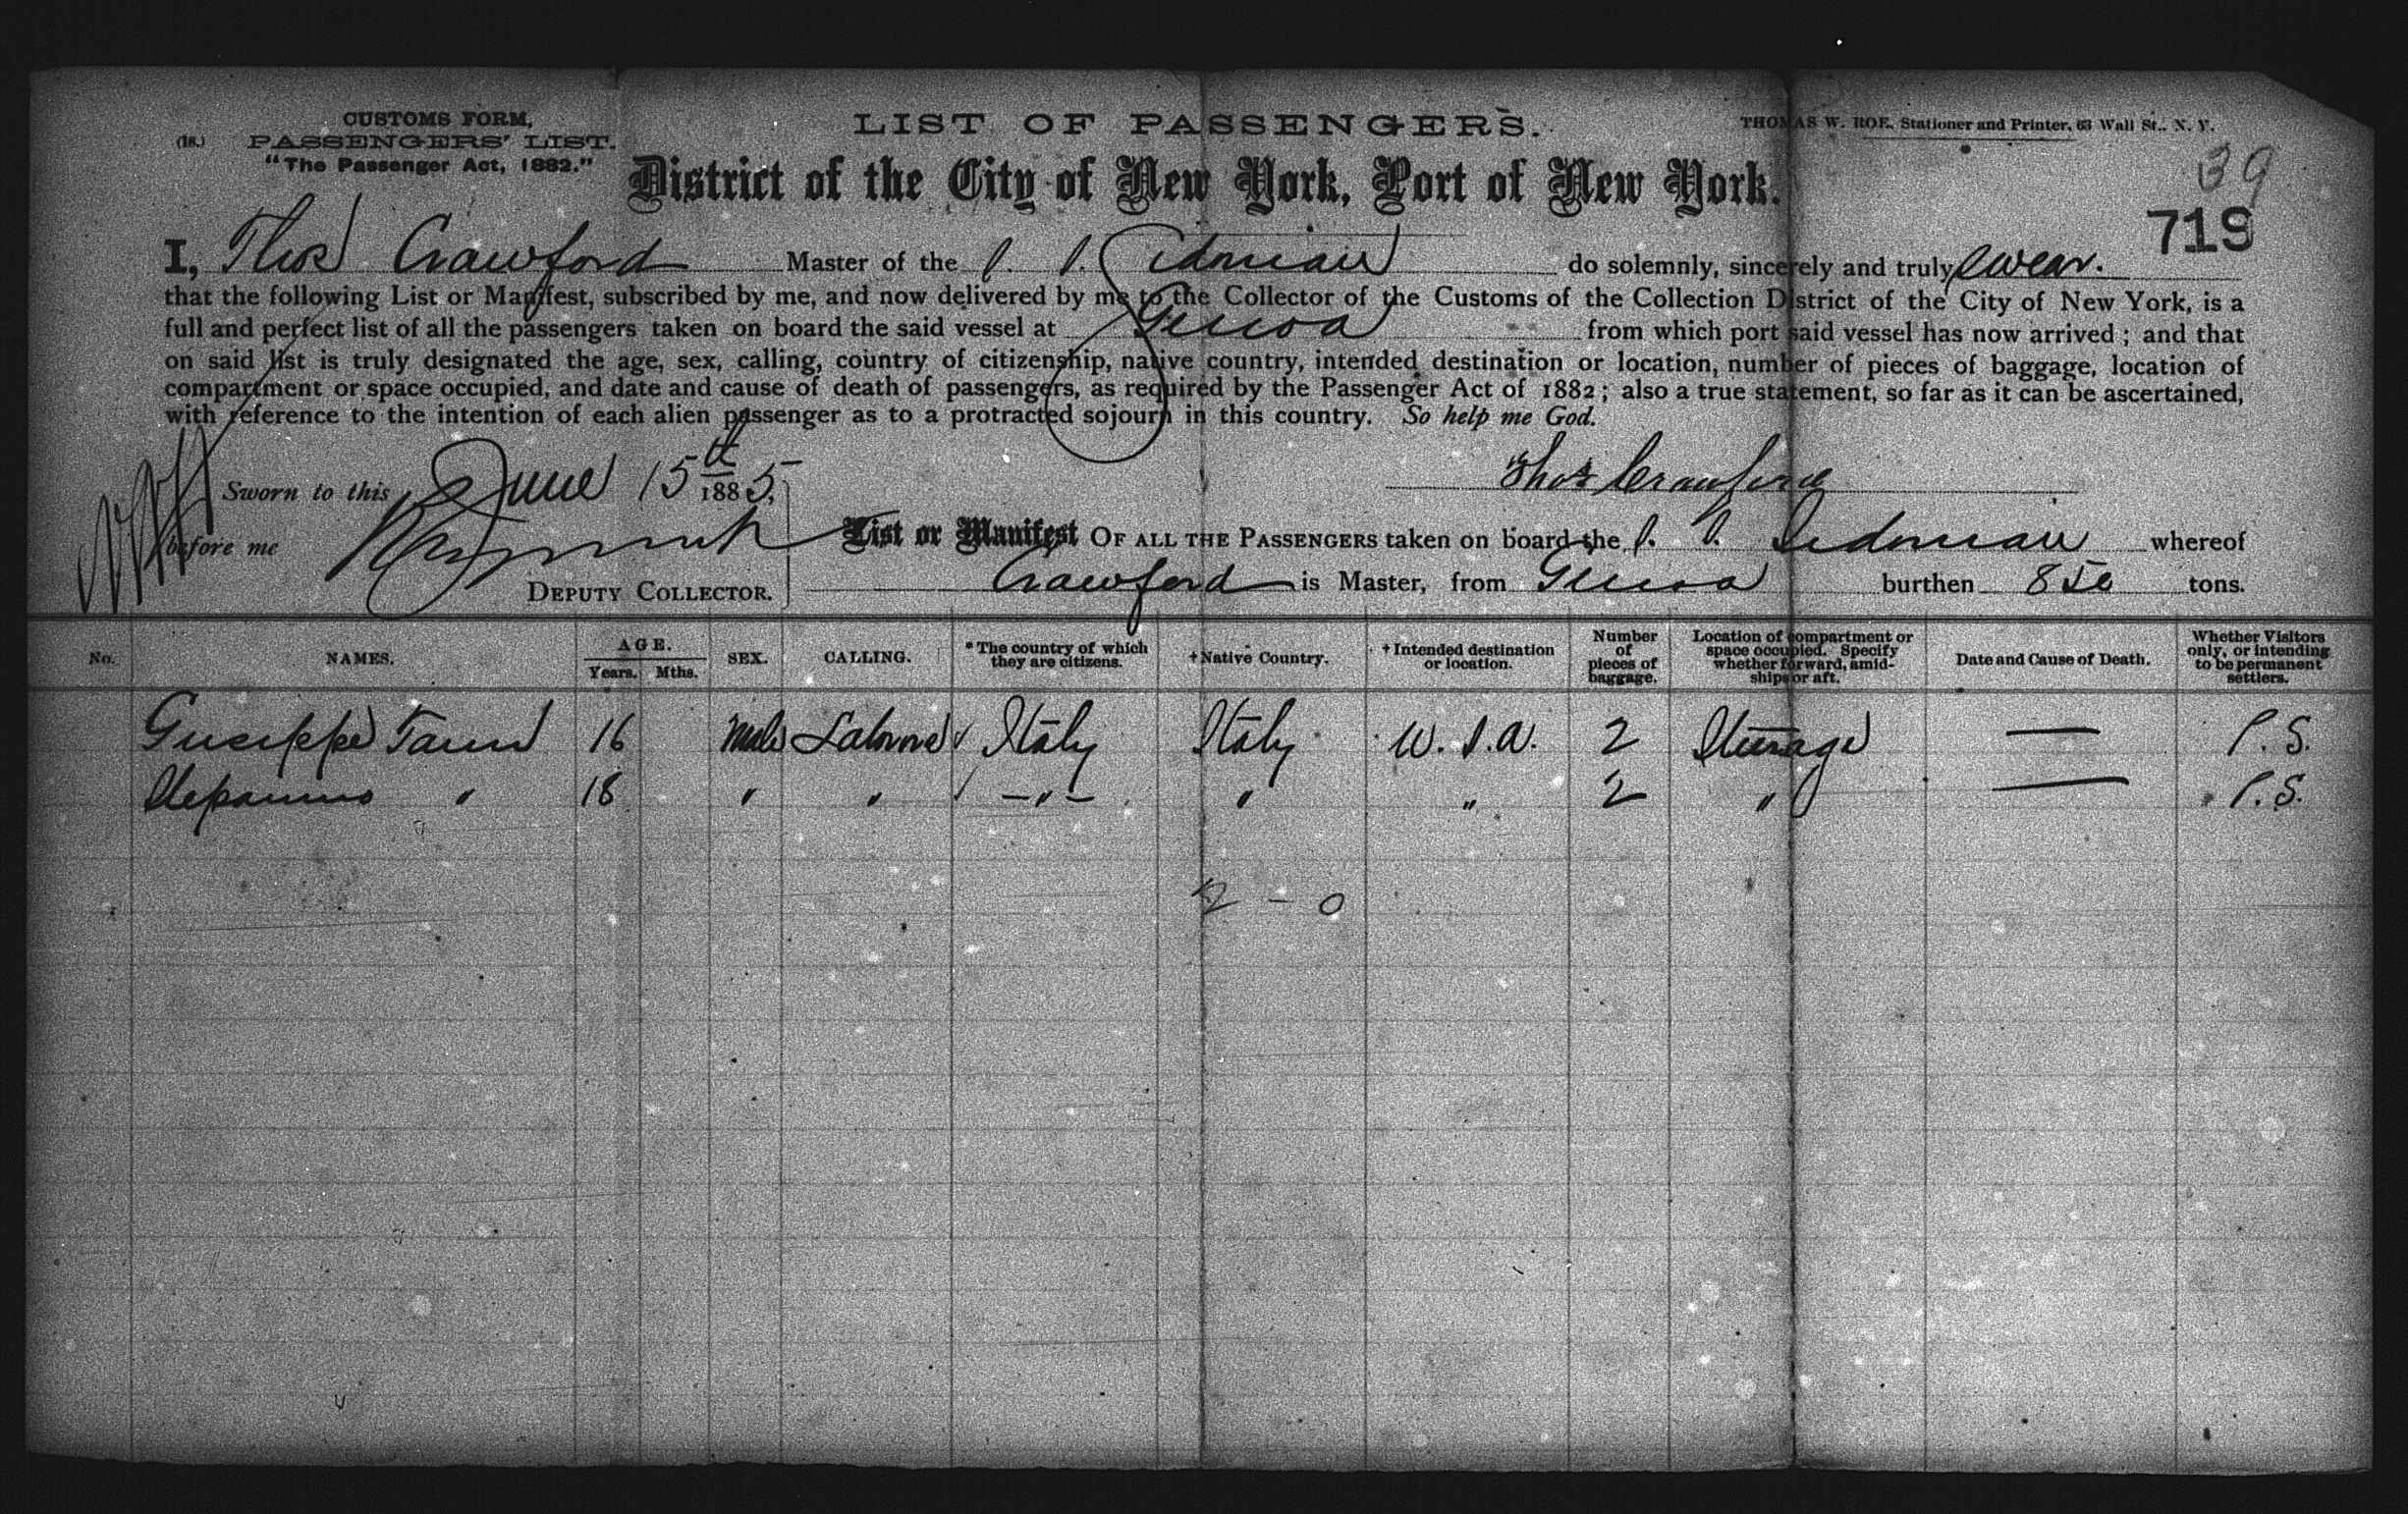 CUSTOMS FORM,
(18.) PASSENGERS' LIST.
"The Passenger Act, 1882."
LIST OF PASSENGERS.
THOMAS W. ROE, Stationer and Printer, 63 Wall St., N. Y.
District of the City of New York, Port of New York.
39
719
I, Thos Crawford Master of the S. S. do solemnly, sincerely and truly swear.
that the following List or Manifest, subscribed by me, and now delivered by me to the Collector of the Customs of the Collection District of the City of New York, is a
full and perfect list of all the passengers taken on board the said vessel at Genoa from which port said vessel has now arrived; and that
on said list is truly designated the age, sex, calling, country of citizenship, native country, intended destination or location, number of pieces of baggage, location of
compartment or space occupied, and date and cause of death of passengers, as required by the Passenger Act of 1882; also a true statement, so far as it can be ascertained,
with reference to the intention of each alien passenger as to a protracted sojourn in this country. So help me God.
Sworn to this June 15th 1885,
Thos Crawford
before me
DEPUTY COLLECTOR.
List or Manifest OF ALL THE PASSENGERS taken on board the S. S. whereof
Crawford is Master, from Genoa burthen 850 tons.
No. NAMES. AGE. Years. Mths. SEX. CALLING. *The country of which they are citizens. †Native Country. †Intended destination or location. Number of pieces of baggage. Location of compartment or space occupied. Specify whether forward, amidships or aft. Date and Cause of Death. Whether Visitors only, or intending to be permanent settlers.
Guseppe 16 Male Laborer Italy Italy U. S. A. 2 Steerage — P. S.
" 18 " " -"- " " 2 " — P. S.
2 - 0